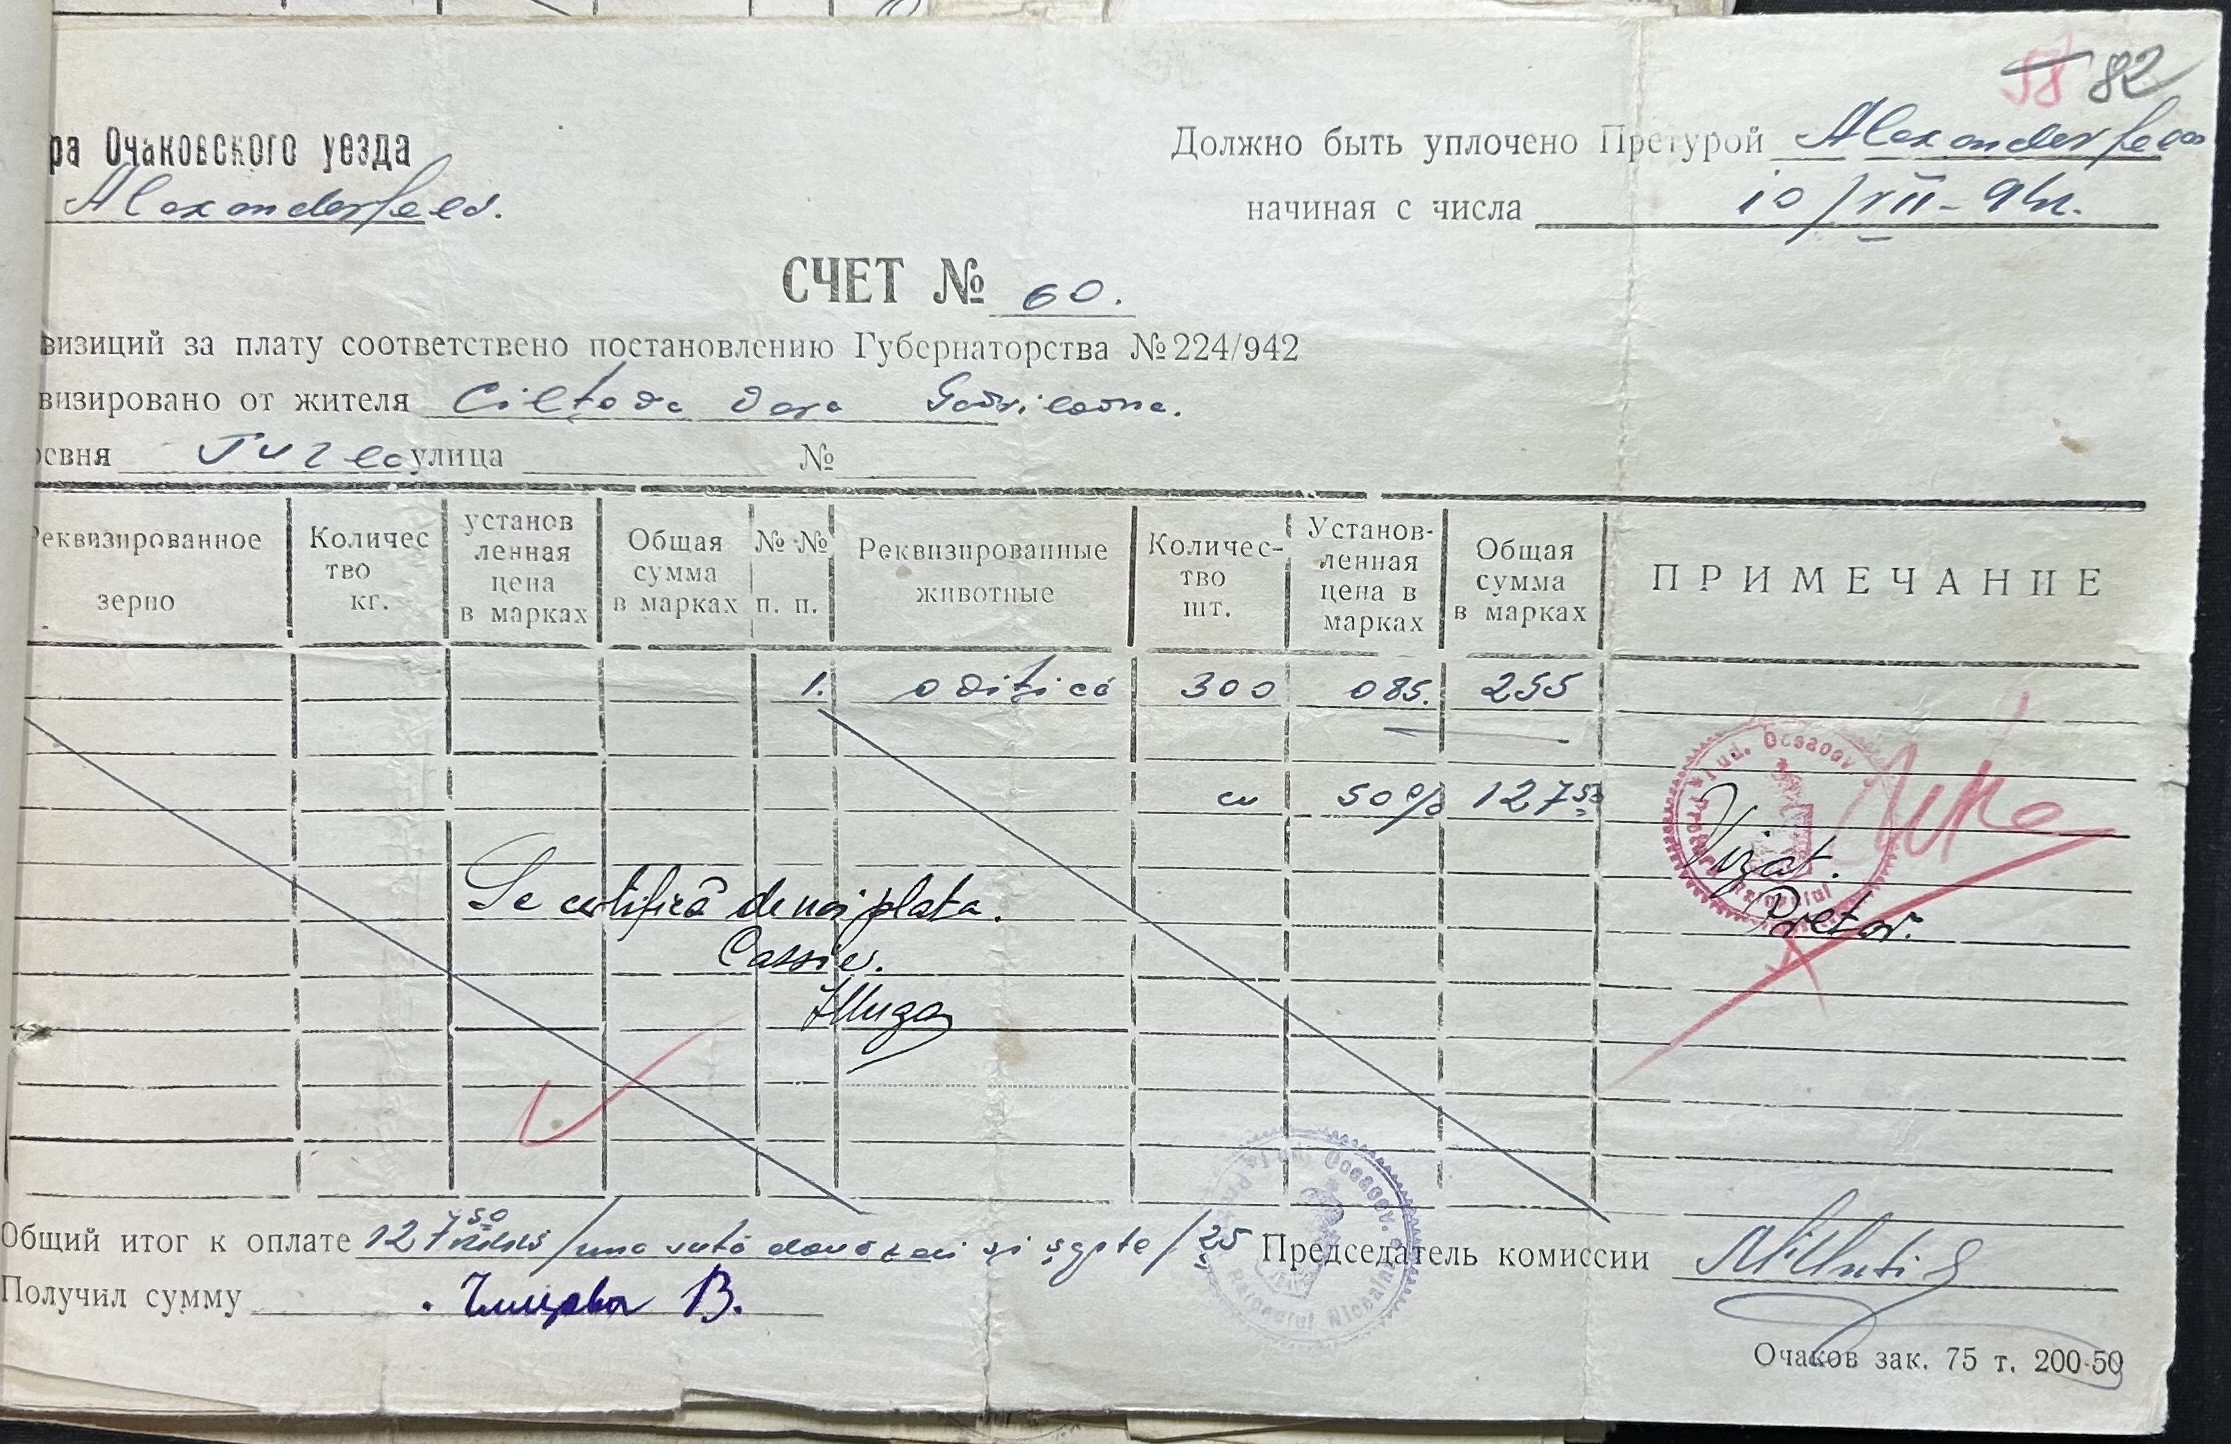 58 82
ра Очаковского уезда
Alexanderfeld.
Должно быть уплочено Претурой Alexanderfeld
начиная с числа 10/VII-942.
СЧЕТ № 60.
визиций за плату соответствено постановлению Губернаторства №224/942
визировано от жителя
евня улица №
Реквизированное зерно
Количес тво кг.
установ ленная цена в марках
Общая сумма в марках
№ № п. п.
Реквизированные животные
Количес- тво шт.
Установ- ленная цена в марках
Общая сумма в марках
ПРИМЕЧАНИЕ
1. 300 085. 255
cu 50% 127 50
Jud. Oceacov
Vizat.
Pretor.
Se certifică de noi plata.
Cassier.
Общий итог к оплате 127 50 /una sută douăzeci și șapte/
Председатель комиссии
Получил сумму
Очаков зак. 75 т. 200-50